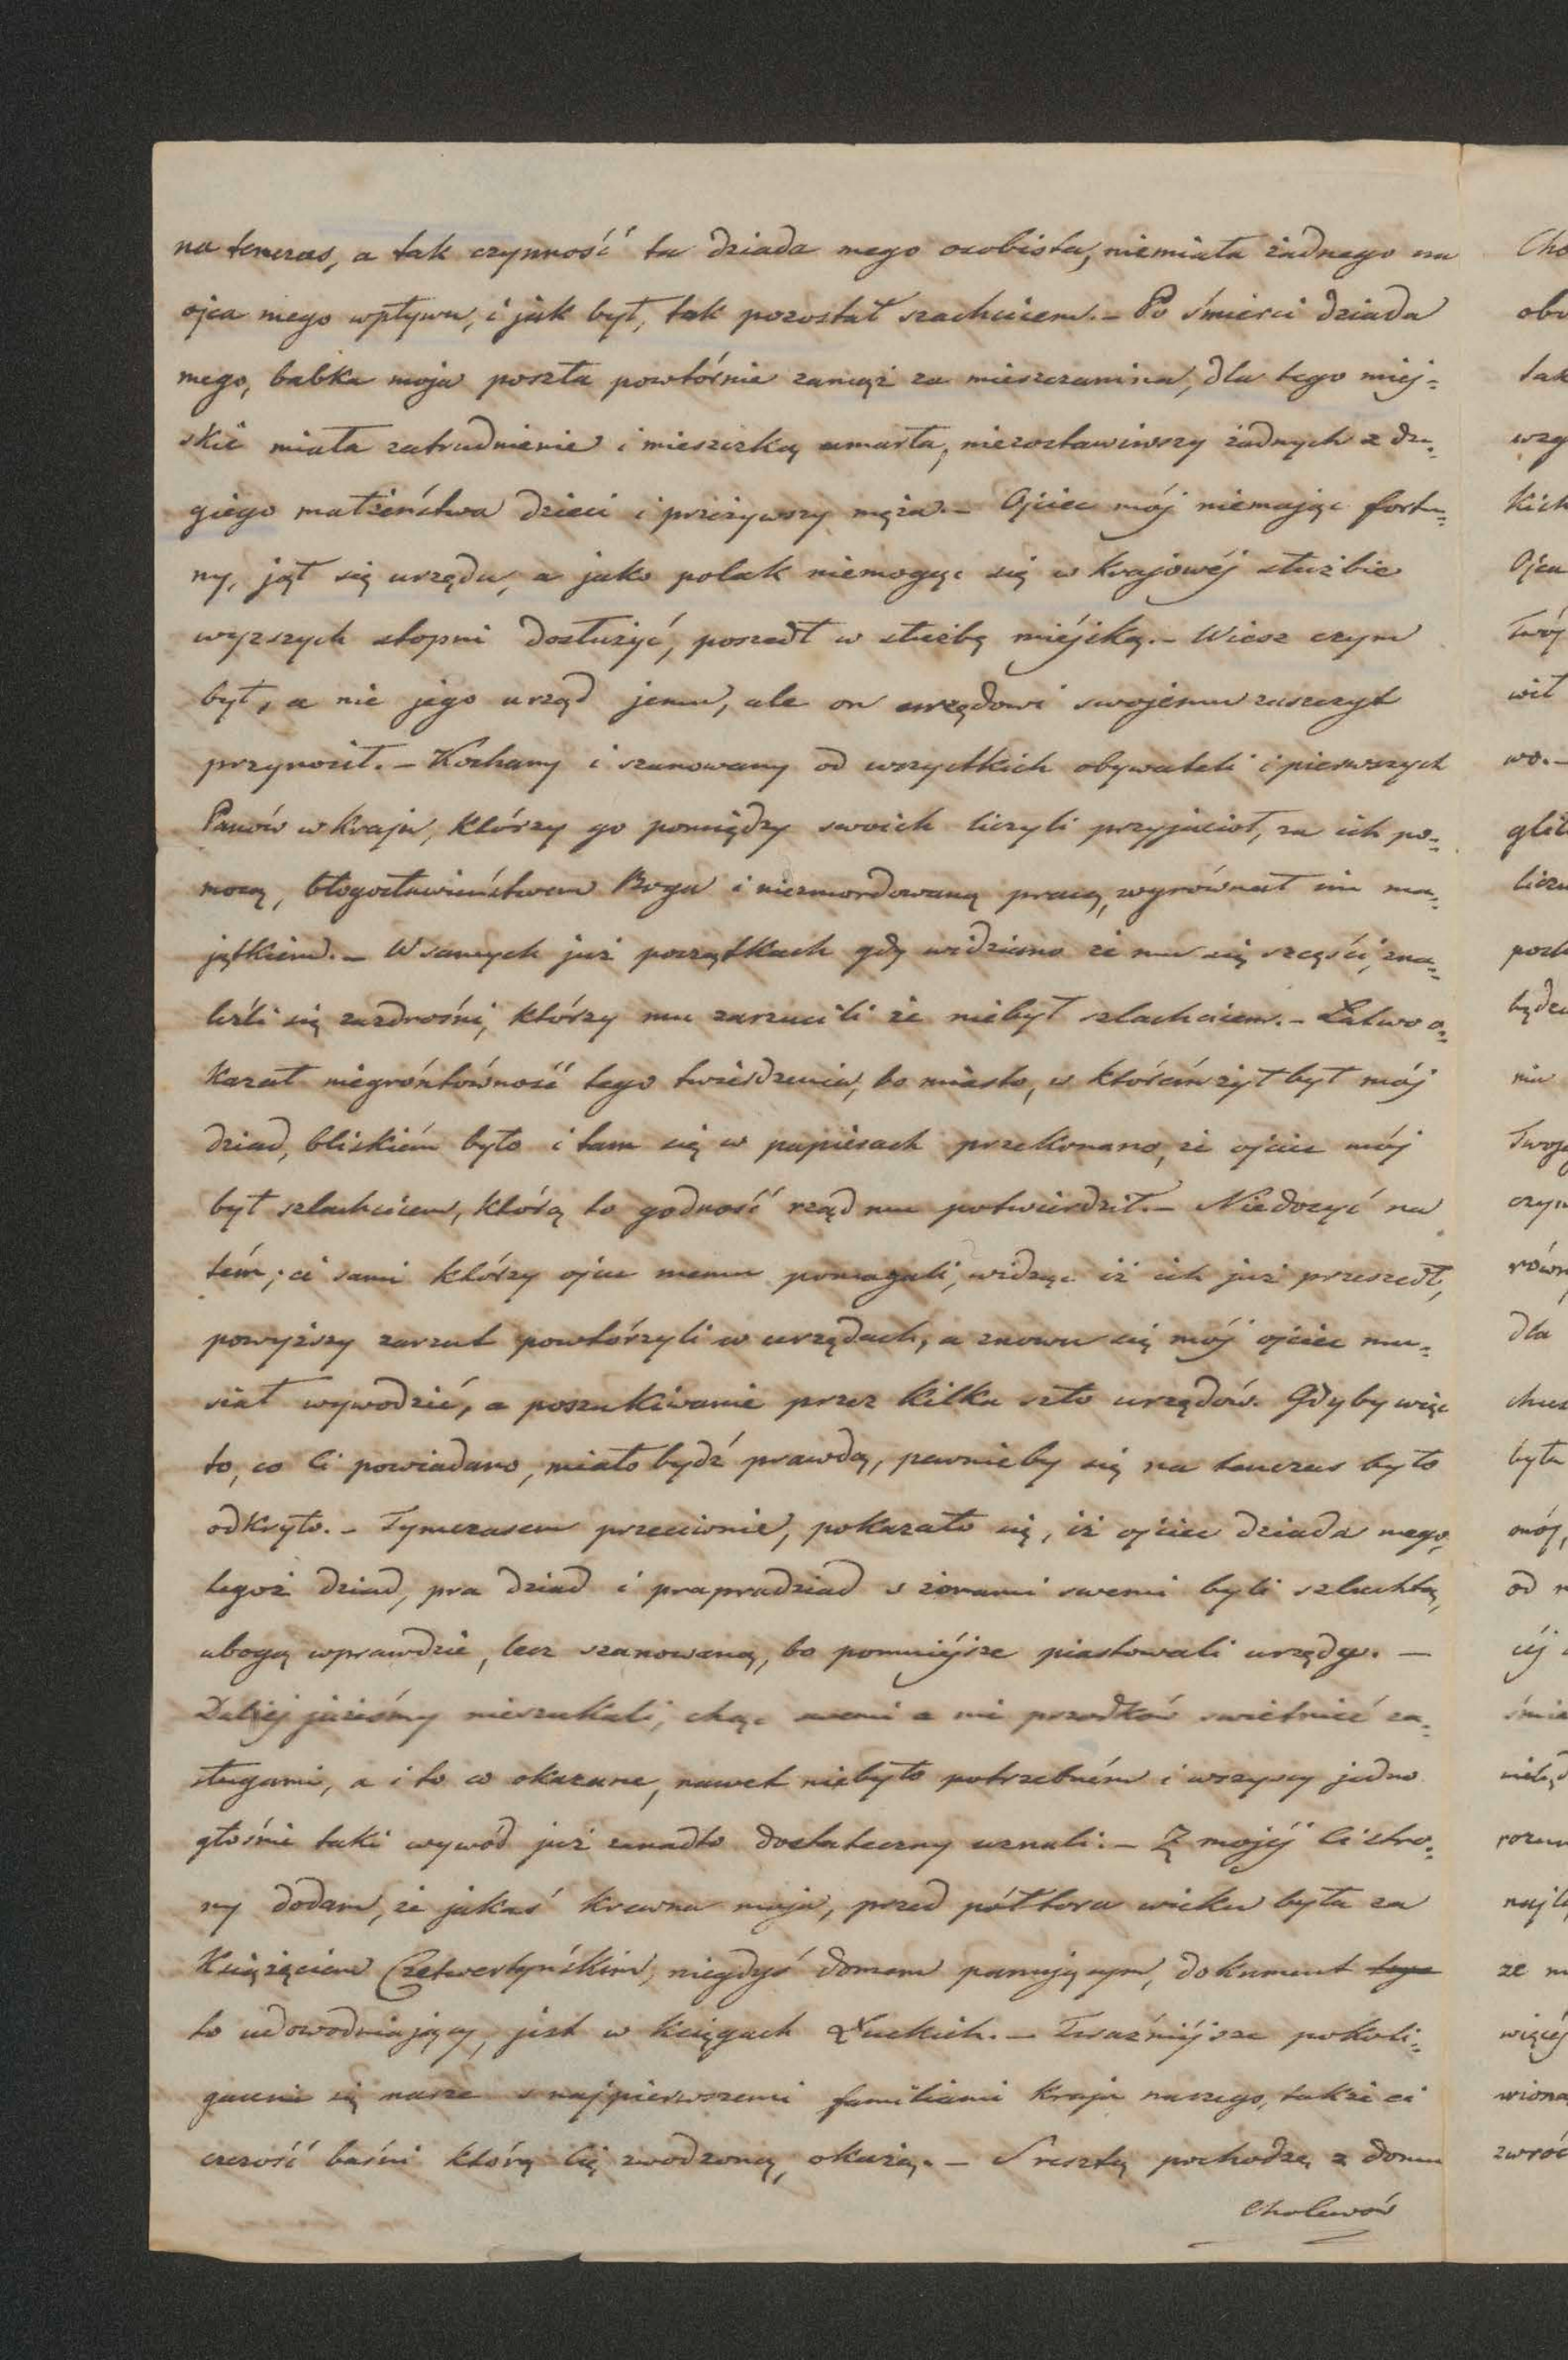 na tenczas, a tak czynność ta dziada mego osobista, niemiała żadnego na
ojca mego wpływu, i jak był, tak pozostał szachcicem. – Po śmierci dziada
mego, babka moja poszła powtórnie zamąż za mieszczanina, dla tego miej=
skie miała zatrudnienie i mieszczką umarła, niezostawiwszy żadnych z dru=
giego małżeństwa dzieci i przeżywszy męża. – Ojciec mój niemając fortu=
ny, jął się urzędu, a jako polak niemogąc się w krajowéj służbie
wyższych stopni dosłużyć, poszedł w służbę miéjską. – Wiesz czym
był, a nie jego urząd jemu, ale on urzędowi swojemu zaszczyt
przynosił. – Kochany i szanowany od wszystkich obywateli i pierwszych
Panów w kraju, którzy go pomiędzy swoich liczyli przyjaciół, za ich po=
mocą, błogosławieństwem Boga i niezmordowaną pracą, wyrównał im ma=
jątkiem. – W samych już początkach gdy widziano że mu się szczęści, zna=
leźli się zazdrośni, którzy mu zarzucili że niebył szlachcicem. – Łatwo o=
kazał niegróntówność tego twierdzenia, bo miasto, w którém żył był mój
dziad, bliskiém było i tam się w papierach przekonano, że ojciec mój
był szlachcicem, którą to godność rząd mu potwierdził. – Niedosyć na
tém; ci sami którzy ojcu memu pomagali, widząc iż ich już przeszedł,
powyższy zarzut powtórzyli w urzędach, a znowu się mój ojciec mu=
siał wywodzić, a poszukiwanie przez kilka szło urzędów. Gdyby więc
to, co Ci powiadano, miało bydź prawdą, pewnieby się na tenczas było
odkryło. – Tymczasem przeciwnie, pokazało się, iż ojciec dziada mego,
tegoż dziad, pra dziad i prapradziad s żonami swemi byli szlachtą,
ubogą wprawdzie, lecz szanowaną, bo pomniéjsze piastowali urzędy. –
Daléj jużeśmy nieszukali, chcąc swemi a nie przodków swietnieć za=
sługami, a i to co okazane, nawet niebyło potrzebném i wszyscy jedno
głośnie taki wywód już zanadto dostateczny uznali: – Z mojéj Ci stro=
ny dodam, że jakaś krewna moja, przed półtora wieku była za
Książęciem Czetwertyńskim, niegdyś domem panującym, dokument tego
to udowodniający, jest w księgach Łuckich. – Teraźniéjsze pokoli=
gacenie się nasze s najpierwszemi familiami kraju naszego, także ci
czczość baśni którą Cię zwodzono, okażą. – S resztą pochodzę z domu
Cholewów

Cho
obo
tak
wzg
kich
Ojca
Twój
wo. –
będzi
nia
Twoje
czyn
równ
dla
była
od
najle
ze
więcéj
wiona
zwróc